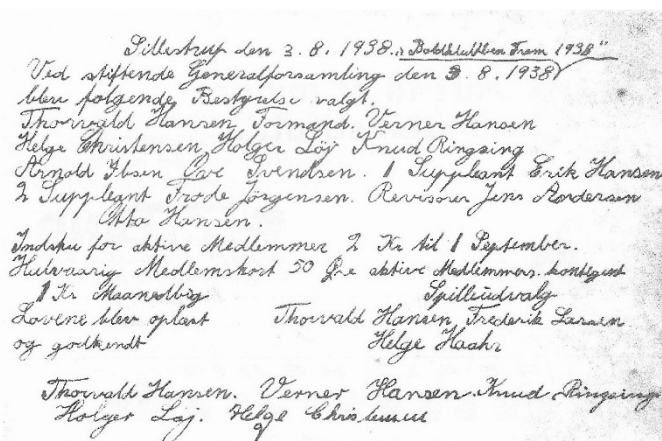 Sillestrup den 3.8.1938. "Boldklubben Frem 1938"
Ved stiftende Generalforsamling den 3.8.1938
blev følgende Bestyrelse valgt.
Thorvald Hansen Formand. Verner Hansen
Helge Christensen Holger Løj Knud Ringsing
Arnold Ibsen Ove Svendsen. 1 Suppleant Erik Hansen
2 Suppleant Frode Jörgensen. Revisorer Jens Andersen
Otto Hansen.
Indsku for aktive Medlemmer 2 Kr til 1 September.
Halvaarig Medlemskort 50 Øre aktive Medlemmers kontigent
1 Kr Maanedlig Spilleudvalg
Lovene blev oplæst Thorvald Hansen Frederik Larsen
og godkendt Helge Haahr
Thorvald Hansen. Verner Hansen. Knud Ringsing
Holger Løj. Helge Christensen